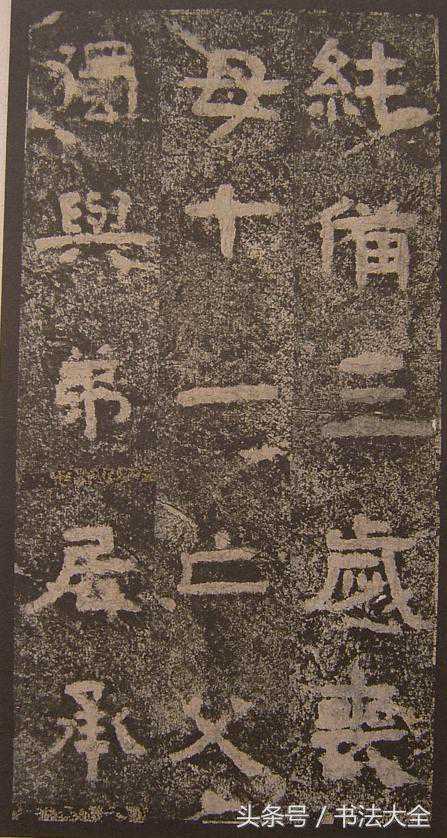 純備三歲喪
母十一亡父
獨與弟居承
头条号 / 书法大全